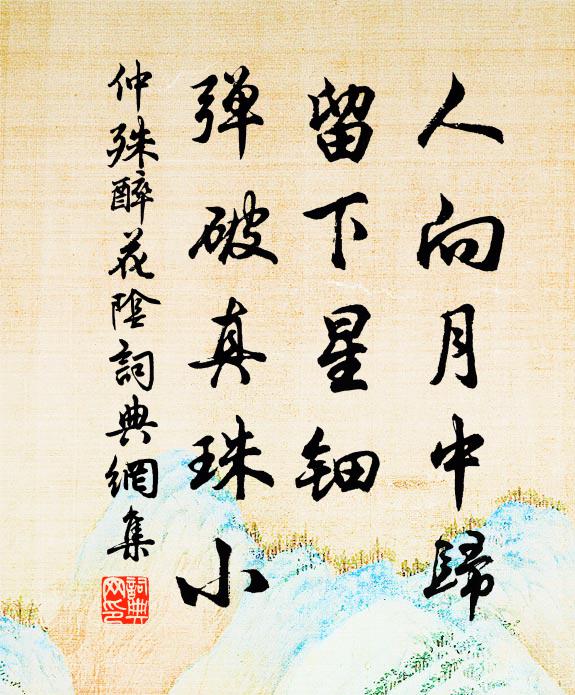 人向月中歸
留下星鈿
彈破真珠小
仲殊醉花陰詞典網集
詞典网印